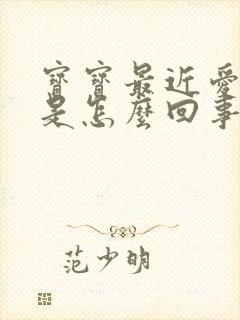 寶寶最近愛
是怎麼回事
范少明